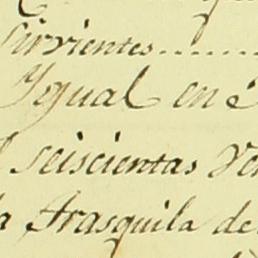 sirvientes........
Ygual en
seiscientas
la trasquila de